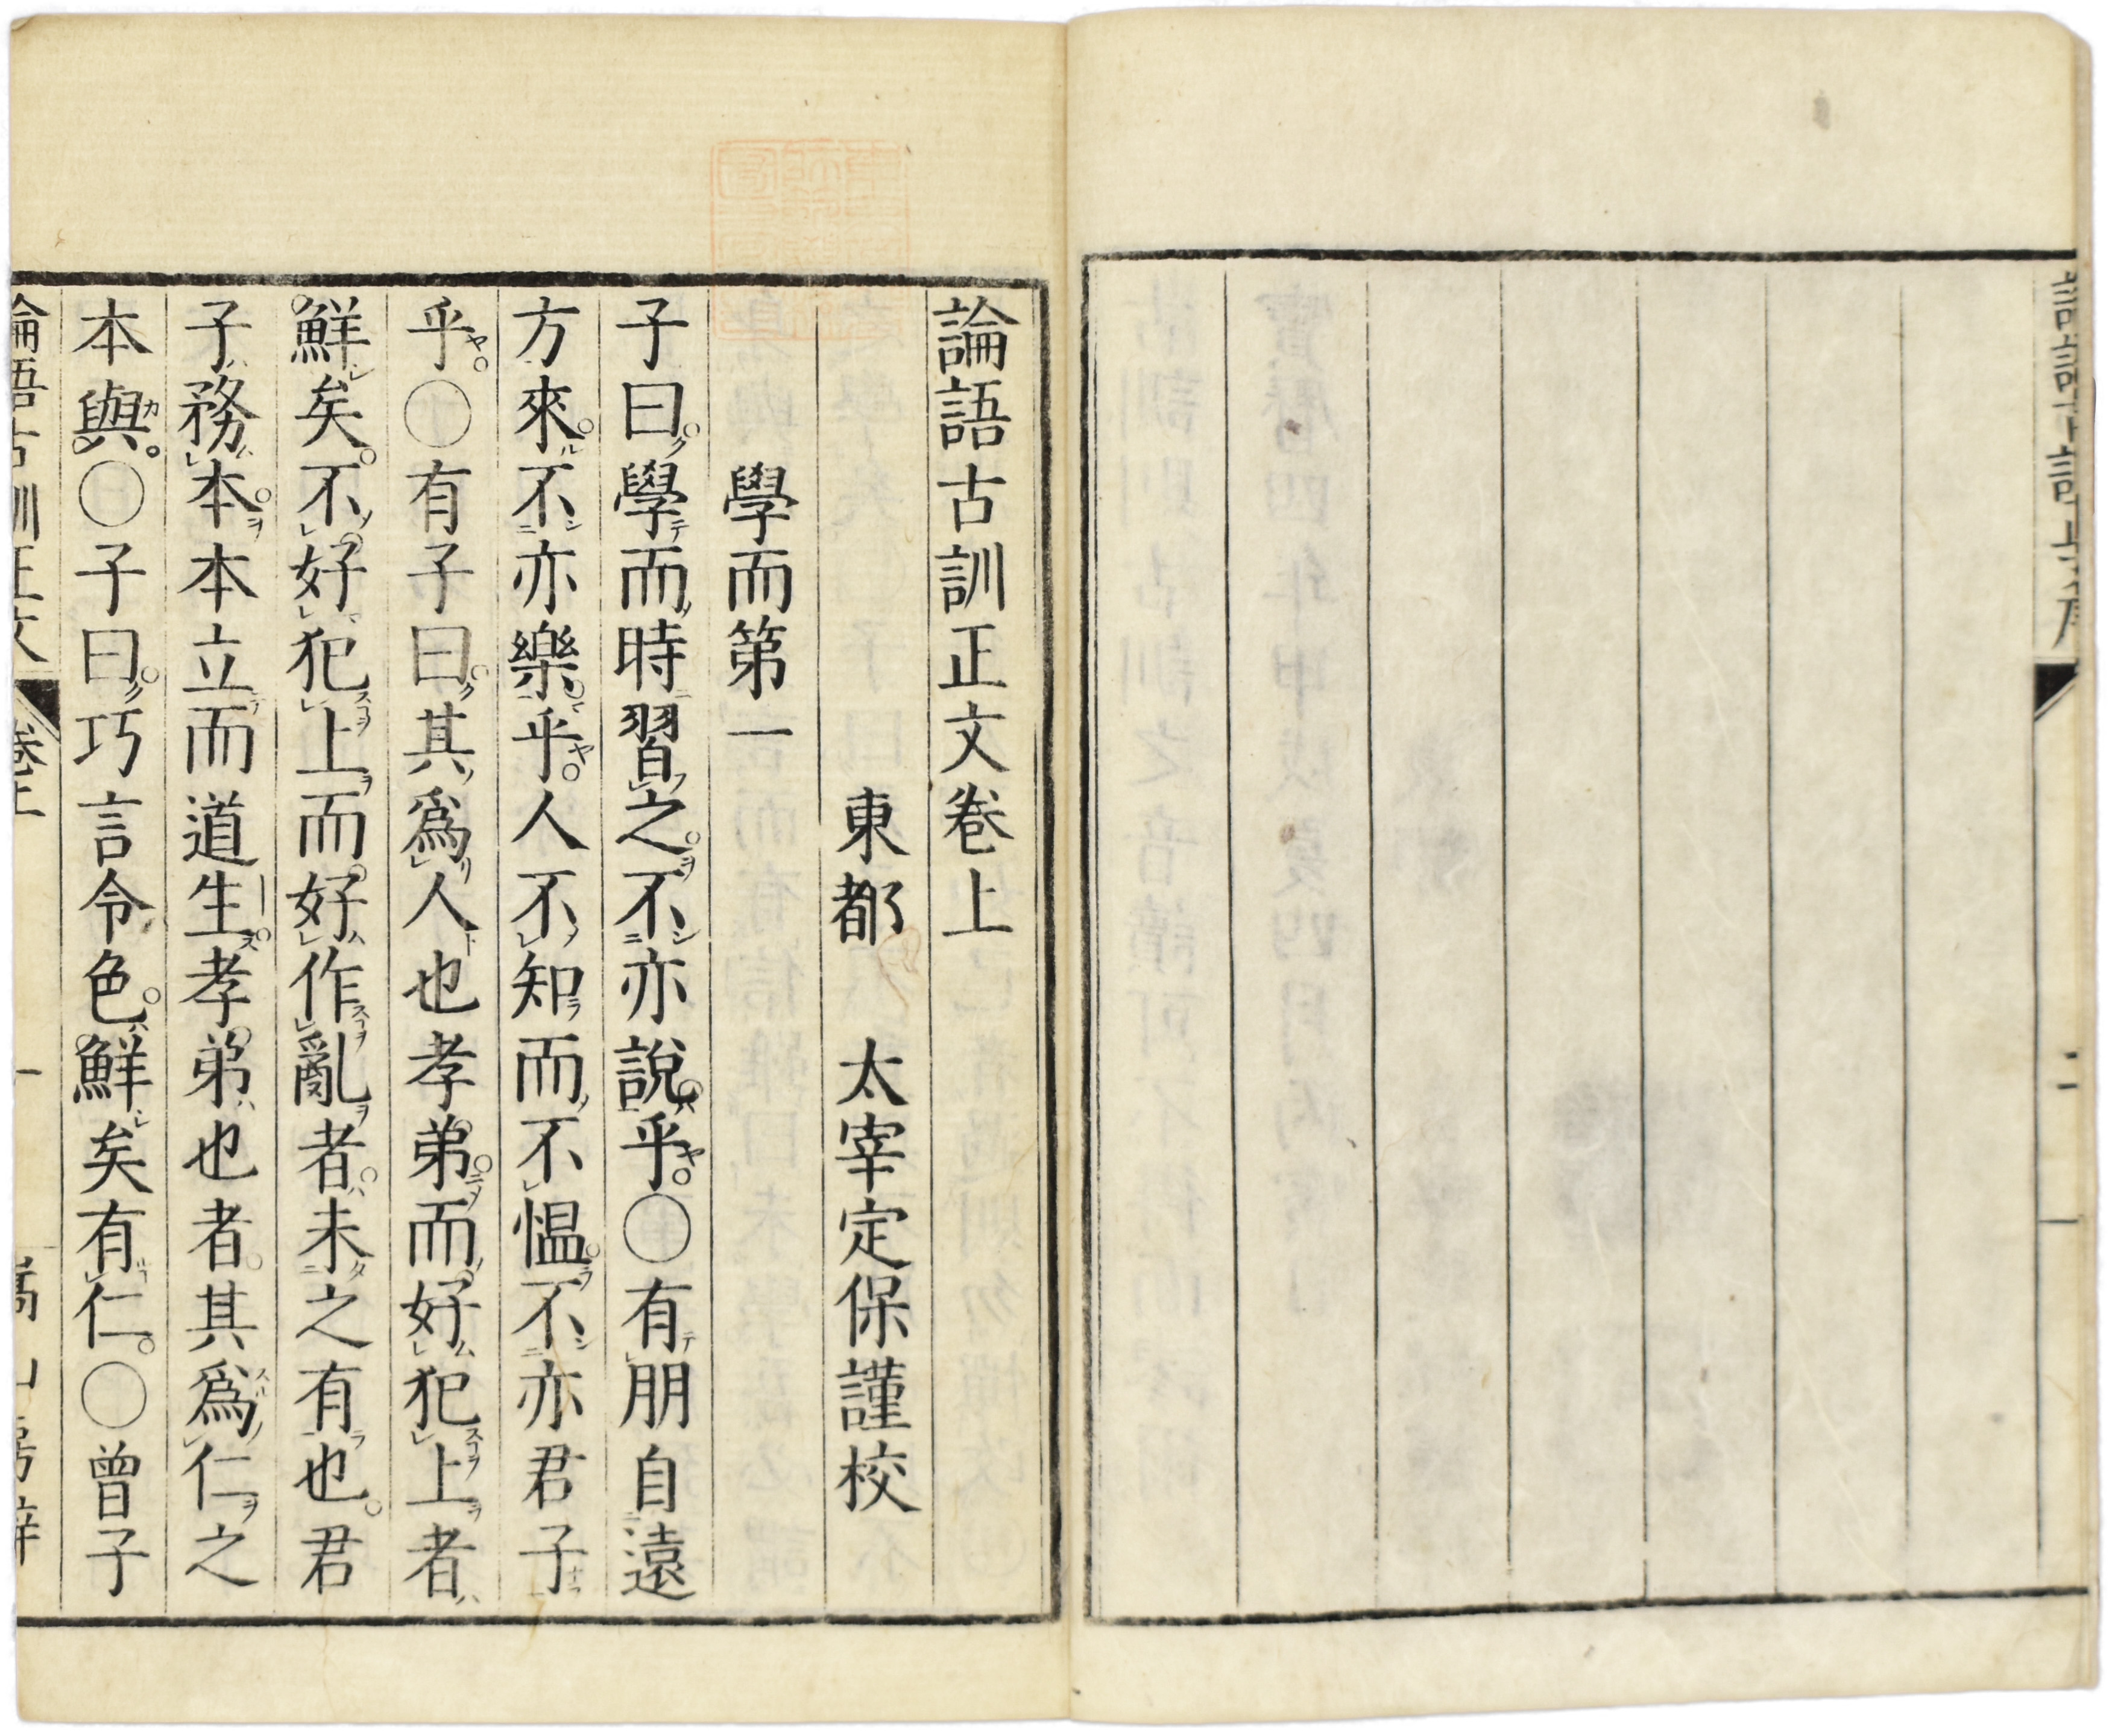 論語古訓正文卷上
東都 太宰定保謹校
學而第一
子曰學而時習之不亦說乎〇有朋自遠
方來不亦樂乎人不知而不慍不亦君子
乎〇有子曰其爲人也孝弟而好犯上者
鮮矣不好犯上而好作亂者未之有也君
子務本本立而道生孝弟也者其爲仁之
本與〇子曰巧言令色鮮矣有仁〇曾子
論語古訓正文 卷上 一